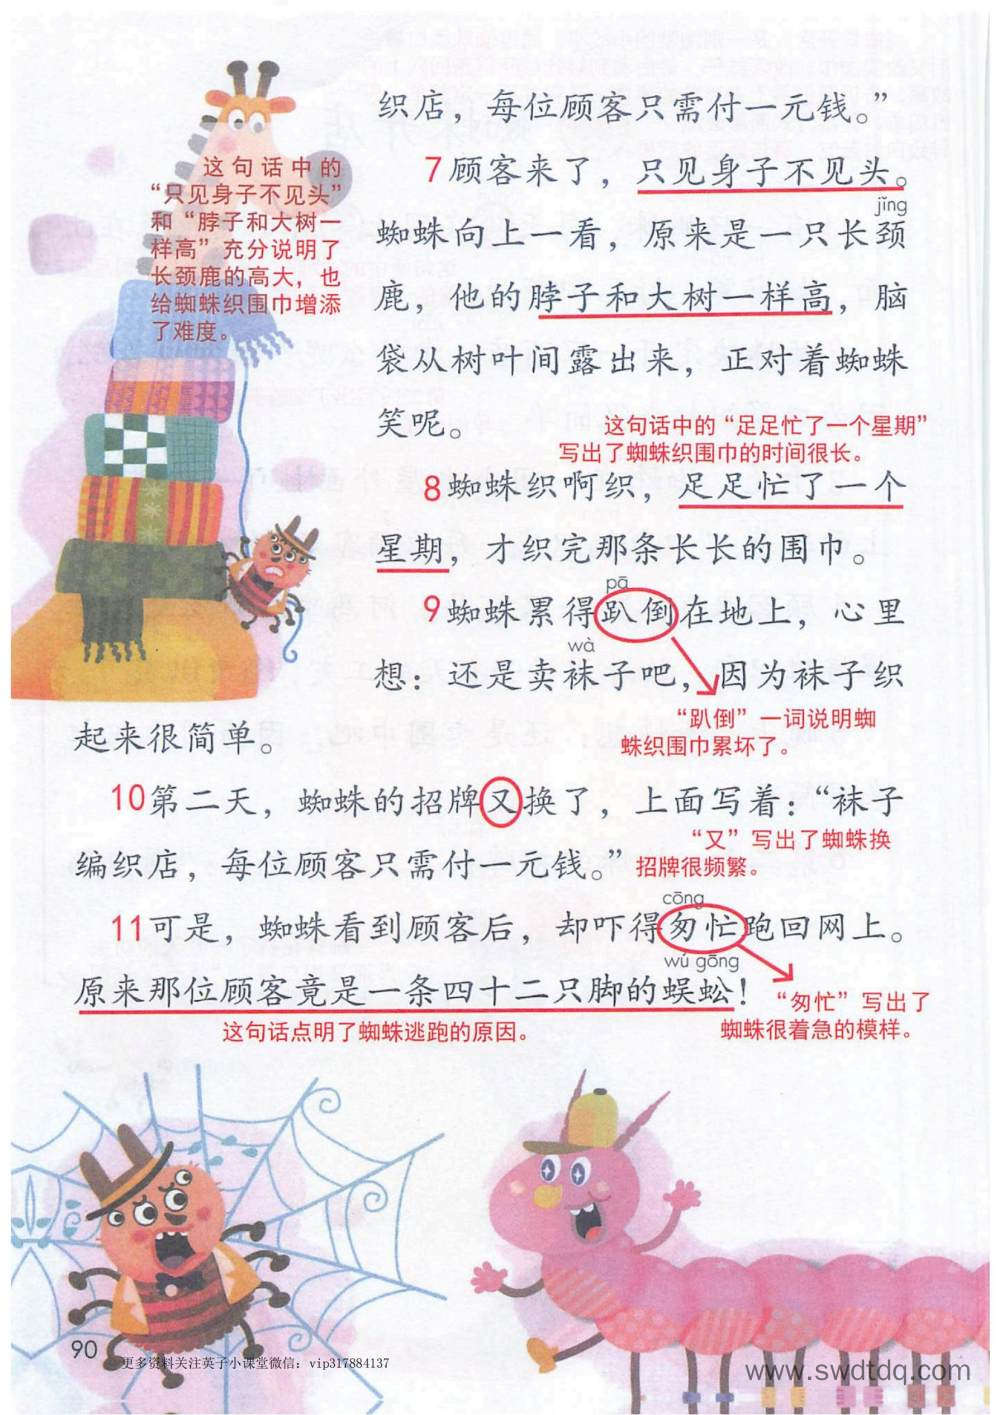 织店，每位顾客只需付一元钱。”
这句话中的
“只见身子不见头”
和“脖子和大树一
样高”充分说明了
长颈鹿的高大，也
给蜘蛛织围巾增添
了难度。
7顾客来了，只见身子不见头。
jǐng
蜘蛛向上一看，原来是一只长颈
鹿，他的脖子和大树一样高，脑
袋从树叶间露出来，正对着蜘蛛
笑呢。
这句话中的“足足忙了一个星期”
写出了蜘蛛织围巾的时间很长。
8蜘蛛织啊织，足足忙了一个
星期，才织完那条长长的围巾。
pā
9蜘蛛累得趴倒在地上，心里
wà
想：还是卖袜子吧，因为袜子织
“趴倒”一词说明蜘
蛛织围巾累坏了。
起来很简单。
10第二天，蜘蛛的招牌又换了，上面写着：“袜子
“又”写出了蜘蛛换
招牌很频繁。
编织店，每位顾客只需付一元钱。”
cōng
11可是，蜘蛛看到顾客后，却吓得匆忙跑回网上。
wú gōng
原来那位顾客竟是一条四十二只脚的蜈蚣！
“匆忙”写出了
蜘蛛很着急的模样。
这句话点明了蜘蛛逃跑的原因。
90
更多资料关注英子小课堂微信：vip317884137
www.swdtdq.com